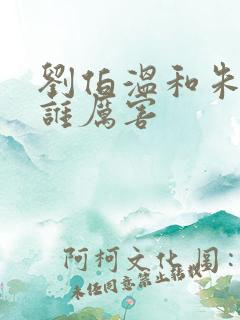 劉伯溫和朱
誰厲害
阿柯文化 图:
未经同意禁止转载